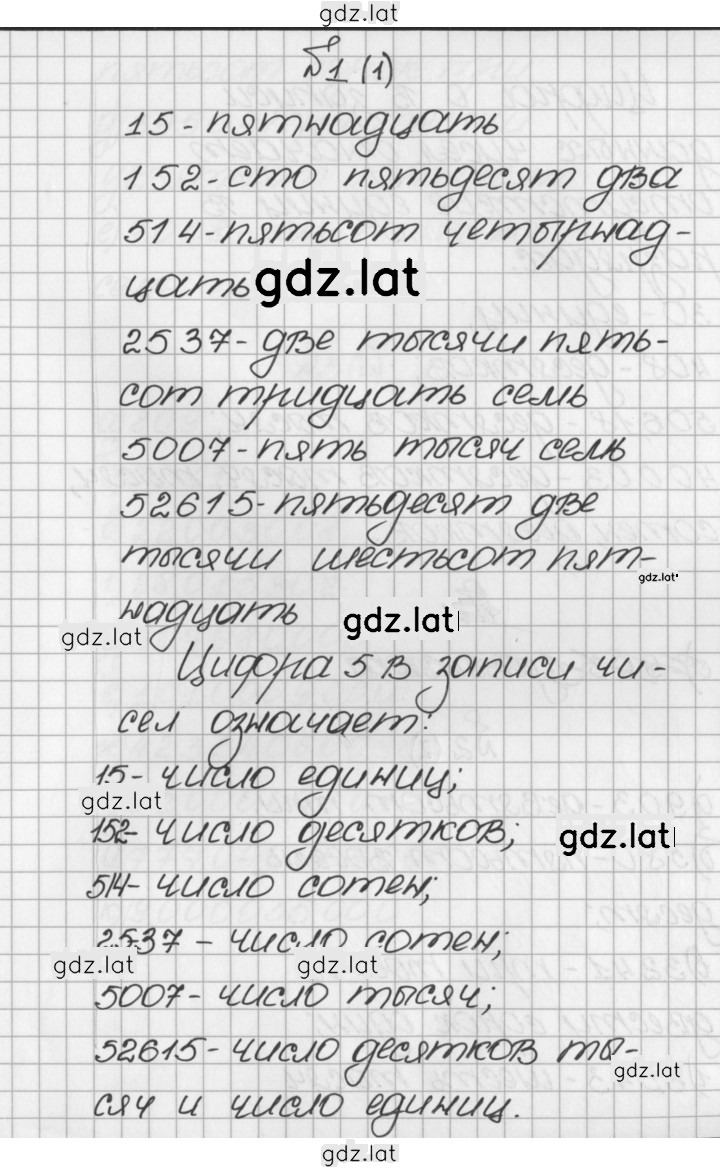 gdz.lat
№1 (1)
15 - пятнадцать
152 - сто пятьдесят два
514 - пятьсот четырнад-
цать gdz.lat
2537 - две тысячи пять-
сот тридцать семь
5007 - пять тысяч семь
52615 - пятьдесят две
тысячи шестьсот пят-
gdz.lat
надцать gdz.lat
gdz.lat
Цифра 5 в записи чи-
сел означает:
15 - число единиц;
gdz.lat
152 - число десятков; gdz.lat
514 - число сотен;
2537 - число сотен;
gdz.lat gdz.lat
5007 - число тысяч;
52615 - число десятков ты-
gdz.lat
сяч и число единиц.
gdz.lat